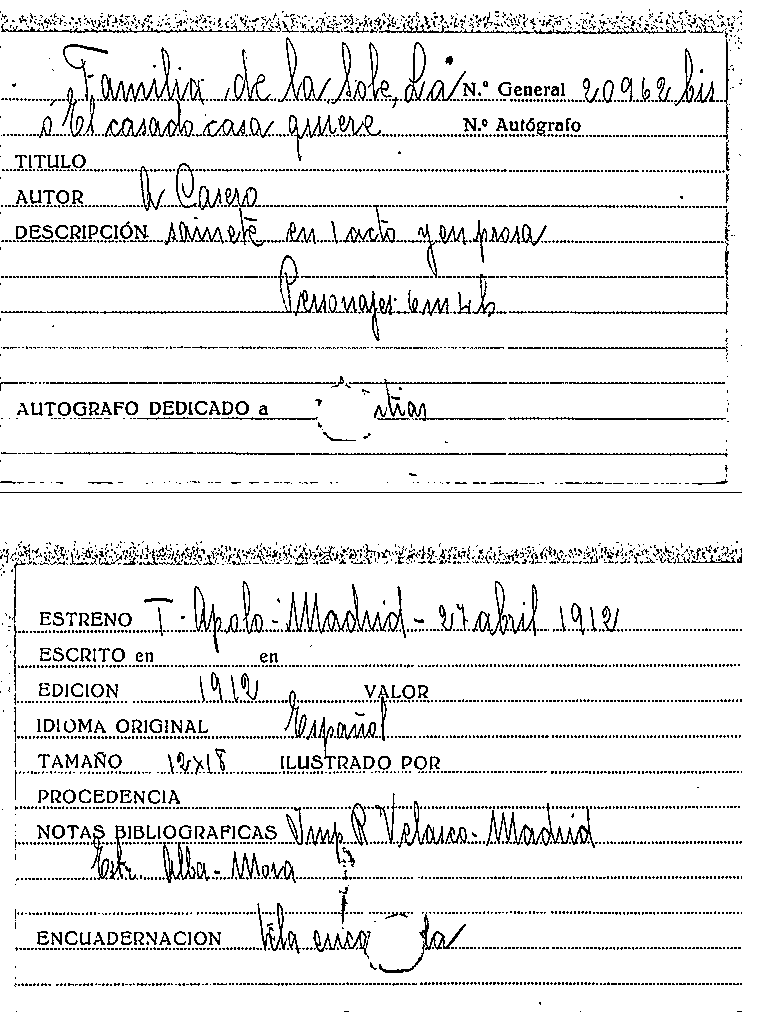 Familia de la Sole, La N.º General 20962 bis
ó El casado casa quiere N.º Autógrafo
TITULO
AUTOR A Casero
DESCRIPCIÓN sainete en 1 acto y en prosa
Personajes. 6 m 4 h
AUTOGRAFO DEDICADO a
ESTRENO T. Apolo - Madrid - 27 abril 1912
ESCRITO en en
EDICION 1912 VALOR
IDIOMA ORIGINAL Español
TAMAÑO 12x18 ILUSTRADO POR
PROCEDENCIA
NOTAS BIBLIOGRAFICAS Imp R Velasco - Madrid
Estr. Alba - Mora
ENCUADERNACION tela